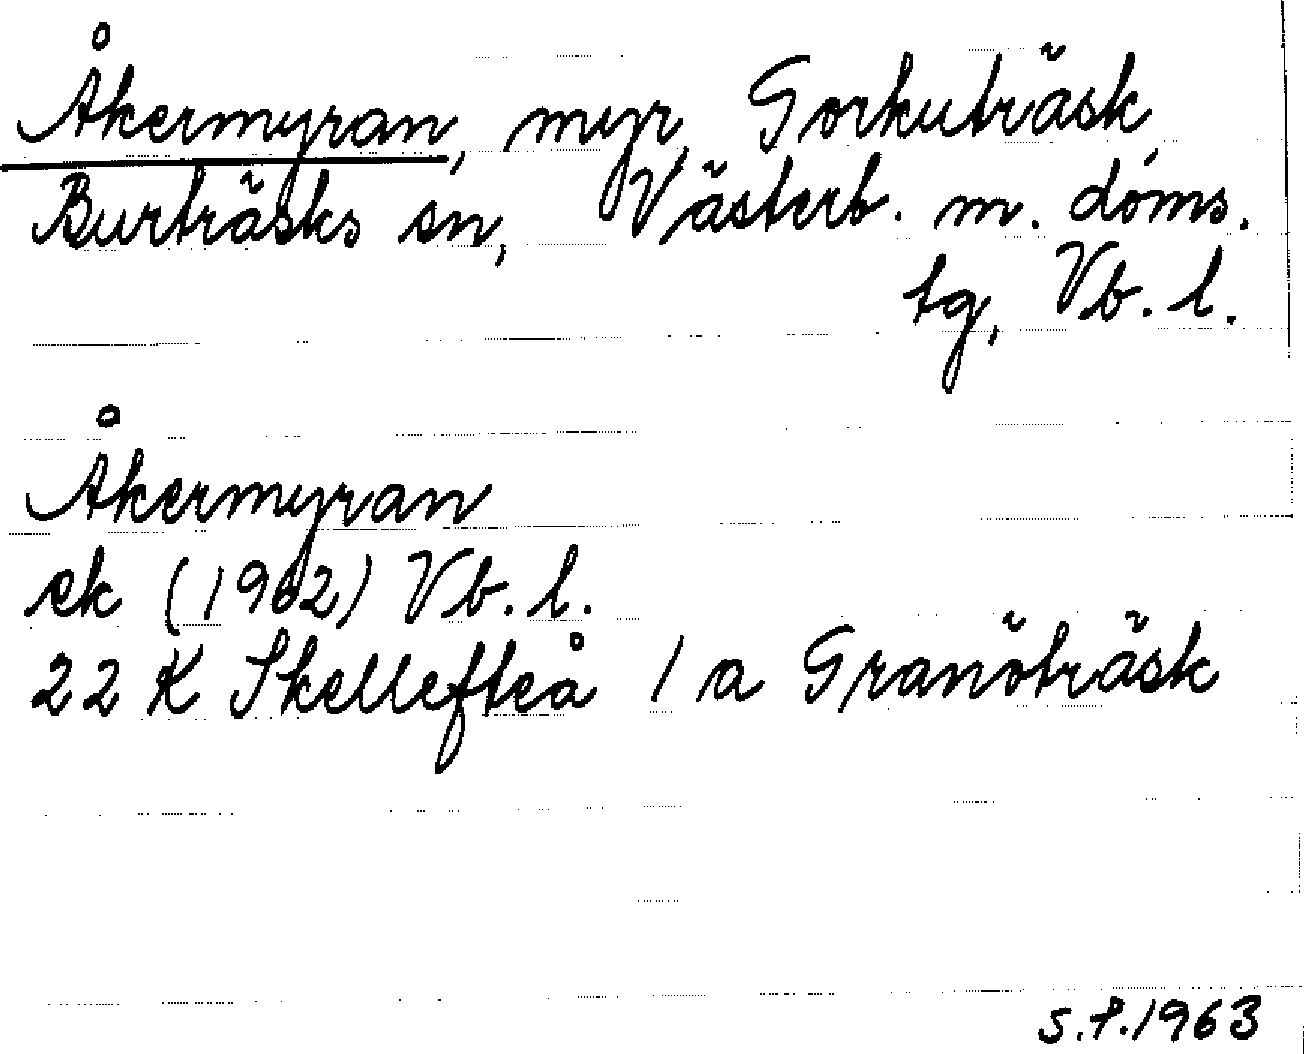 Åkermyran, myr, Gorkuträsk,
Burträsks sn, Västerb. m. doms.
tg, Vb. l.
Åkermyran
ek (1962) Vb. l.
22 K Skellefteå / a Granöträsk
S.P.1963